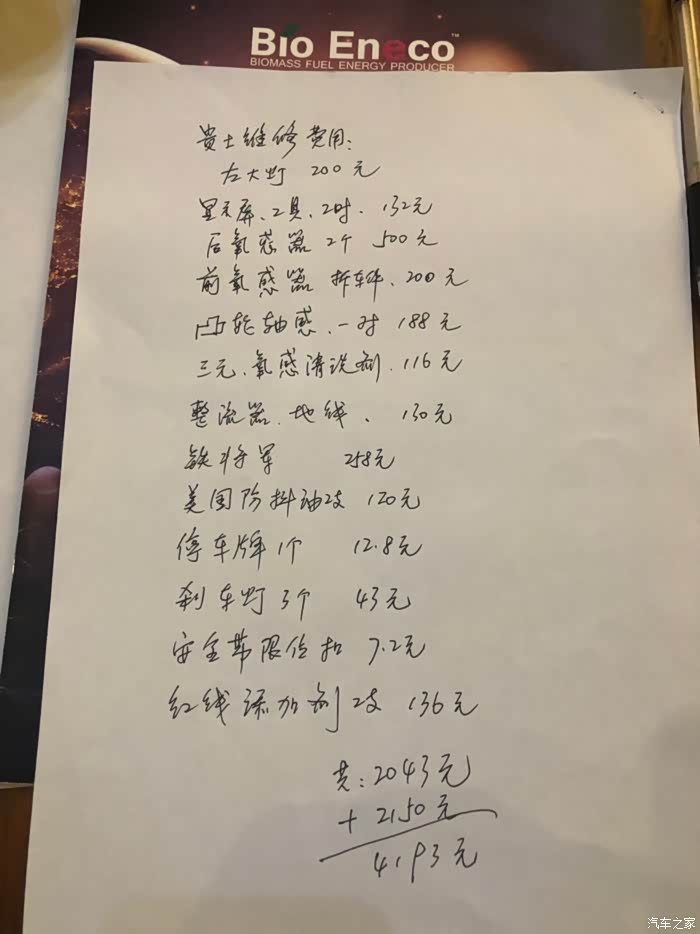 Bio Eneco™
BIOMASS FUEL ENERGY PRODUCER
贵士维修费用：
左大灯 200元
显示屏、工具、工时. 132元
后氧感器 2个 500元
前氧感器 拆车件、200元
凸轮轴感、一对 188元
三元、氧感清洗剂. 116元
整流器、地线、 130元
铁将军 258元
美国防抖油2支 120元
停车牌1个 12.8元
刹车灯3个 43元
安全带限位扣 7.2元
红线添加剂2支 136元
共：2043元
+ 2150元
4193元
汽车之家